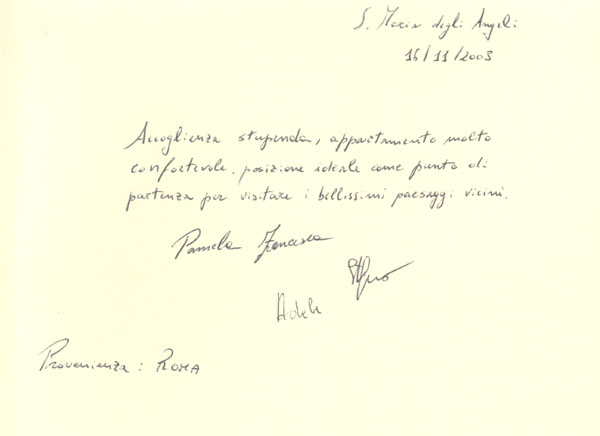 S. Maria degli Angeli
16/11/2003
Accoglienza stupenda, appartamento molto
confortevole, posizione ideale come punto di
partenza per visitare i bellissimi paesaggi vicini.
Pamela Francesca
Adele
Provenienza: ROMA